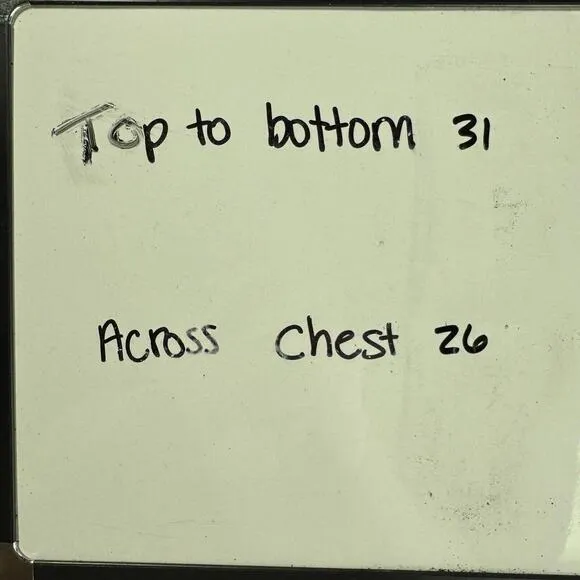 Top to bottom 31
Across Chest 26